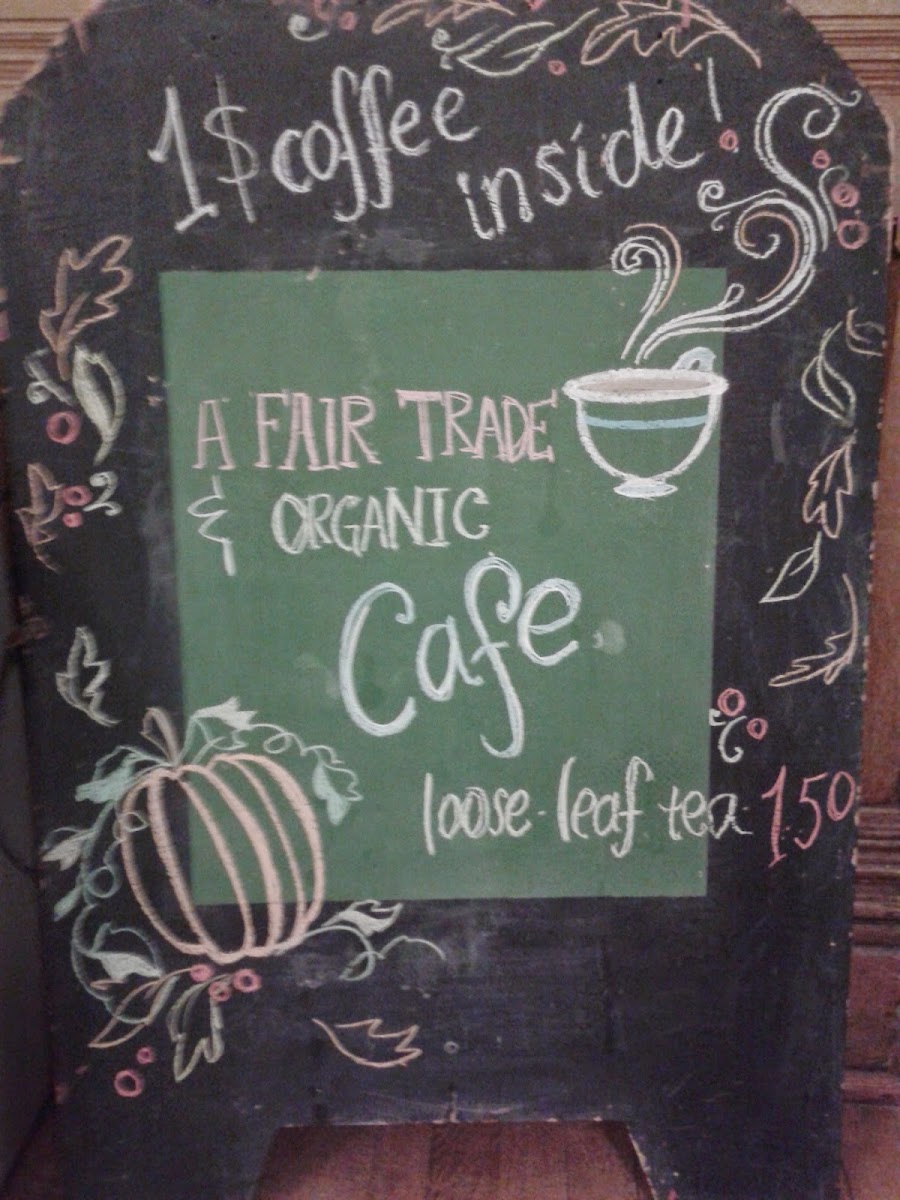 1$ coffee
inside!
A FAIR TRADE
& ORGANIC
Cafe
loose leaf tea 1.50